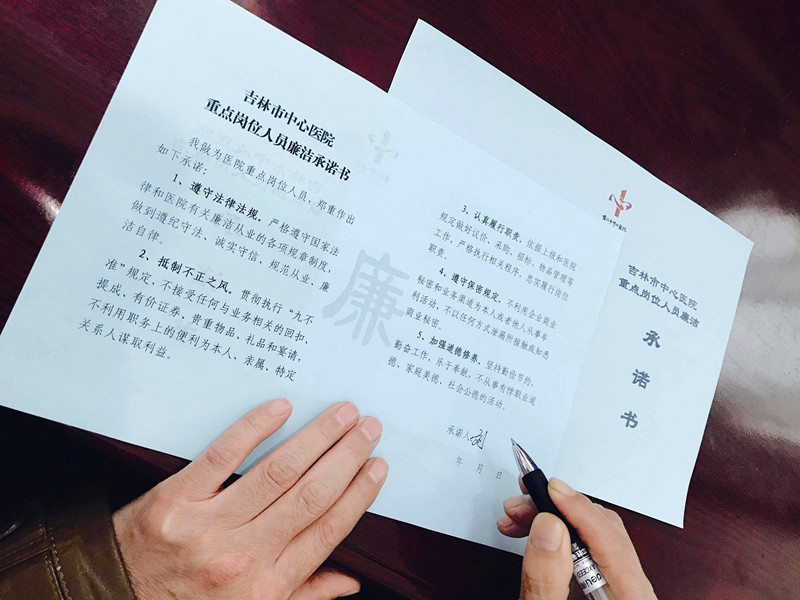 吉林市中心医院
重点岗位人员廉洁承诺书
我做为医院重点岗位人员，郑重作出
如下承诺：
1、遵守法律法规。严格遵守国家法
律和医院有关廉洁从业的各项规章制度，
做到遵纪守法、诚实守信、规范从业、廉
洁自律。
2、抵制不正之风。贯彻执行“九不
准”规定，不接受任何与业务相关的回扣、
提成、有价证券、贵重物品、礼品和宴请，
不利用职务上的便利为本人、亲属、特定
关系人谋取利益。
廉
3、认真履行职责。依据上级和医院
规定做好议价、采购、招标、物品管理等
工作，严格执行相关程序，忠实履行岗位
职责。
4、遵守保密规定。不利用企业商业
秘密和业务渠道为本人或者他人从事牟
利活动，不以任何方式泄漏所接触或知悉
商业秘密。
5、加强道德修养。坚持勤俭节约，
勤奋工作，乐于奉献，不从事有悖职业道
德、家庭美德、社会公德的活动。
承诺人
年 月 日
吉林市中心医院
重点岗位人员廉洁
承
诺
书
deli